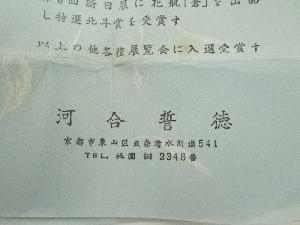 回新日展に花瓶「蒼」を出品
し特選北斗賞を受賞す
以上の他各種展覧会に入選受賞す
河合誓徳
京都市東山区五条清水新道541
TEL. 祇園 2348番